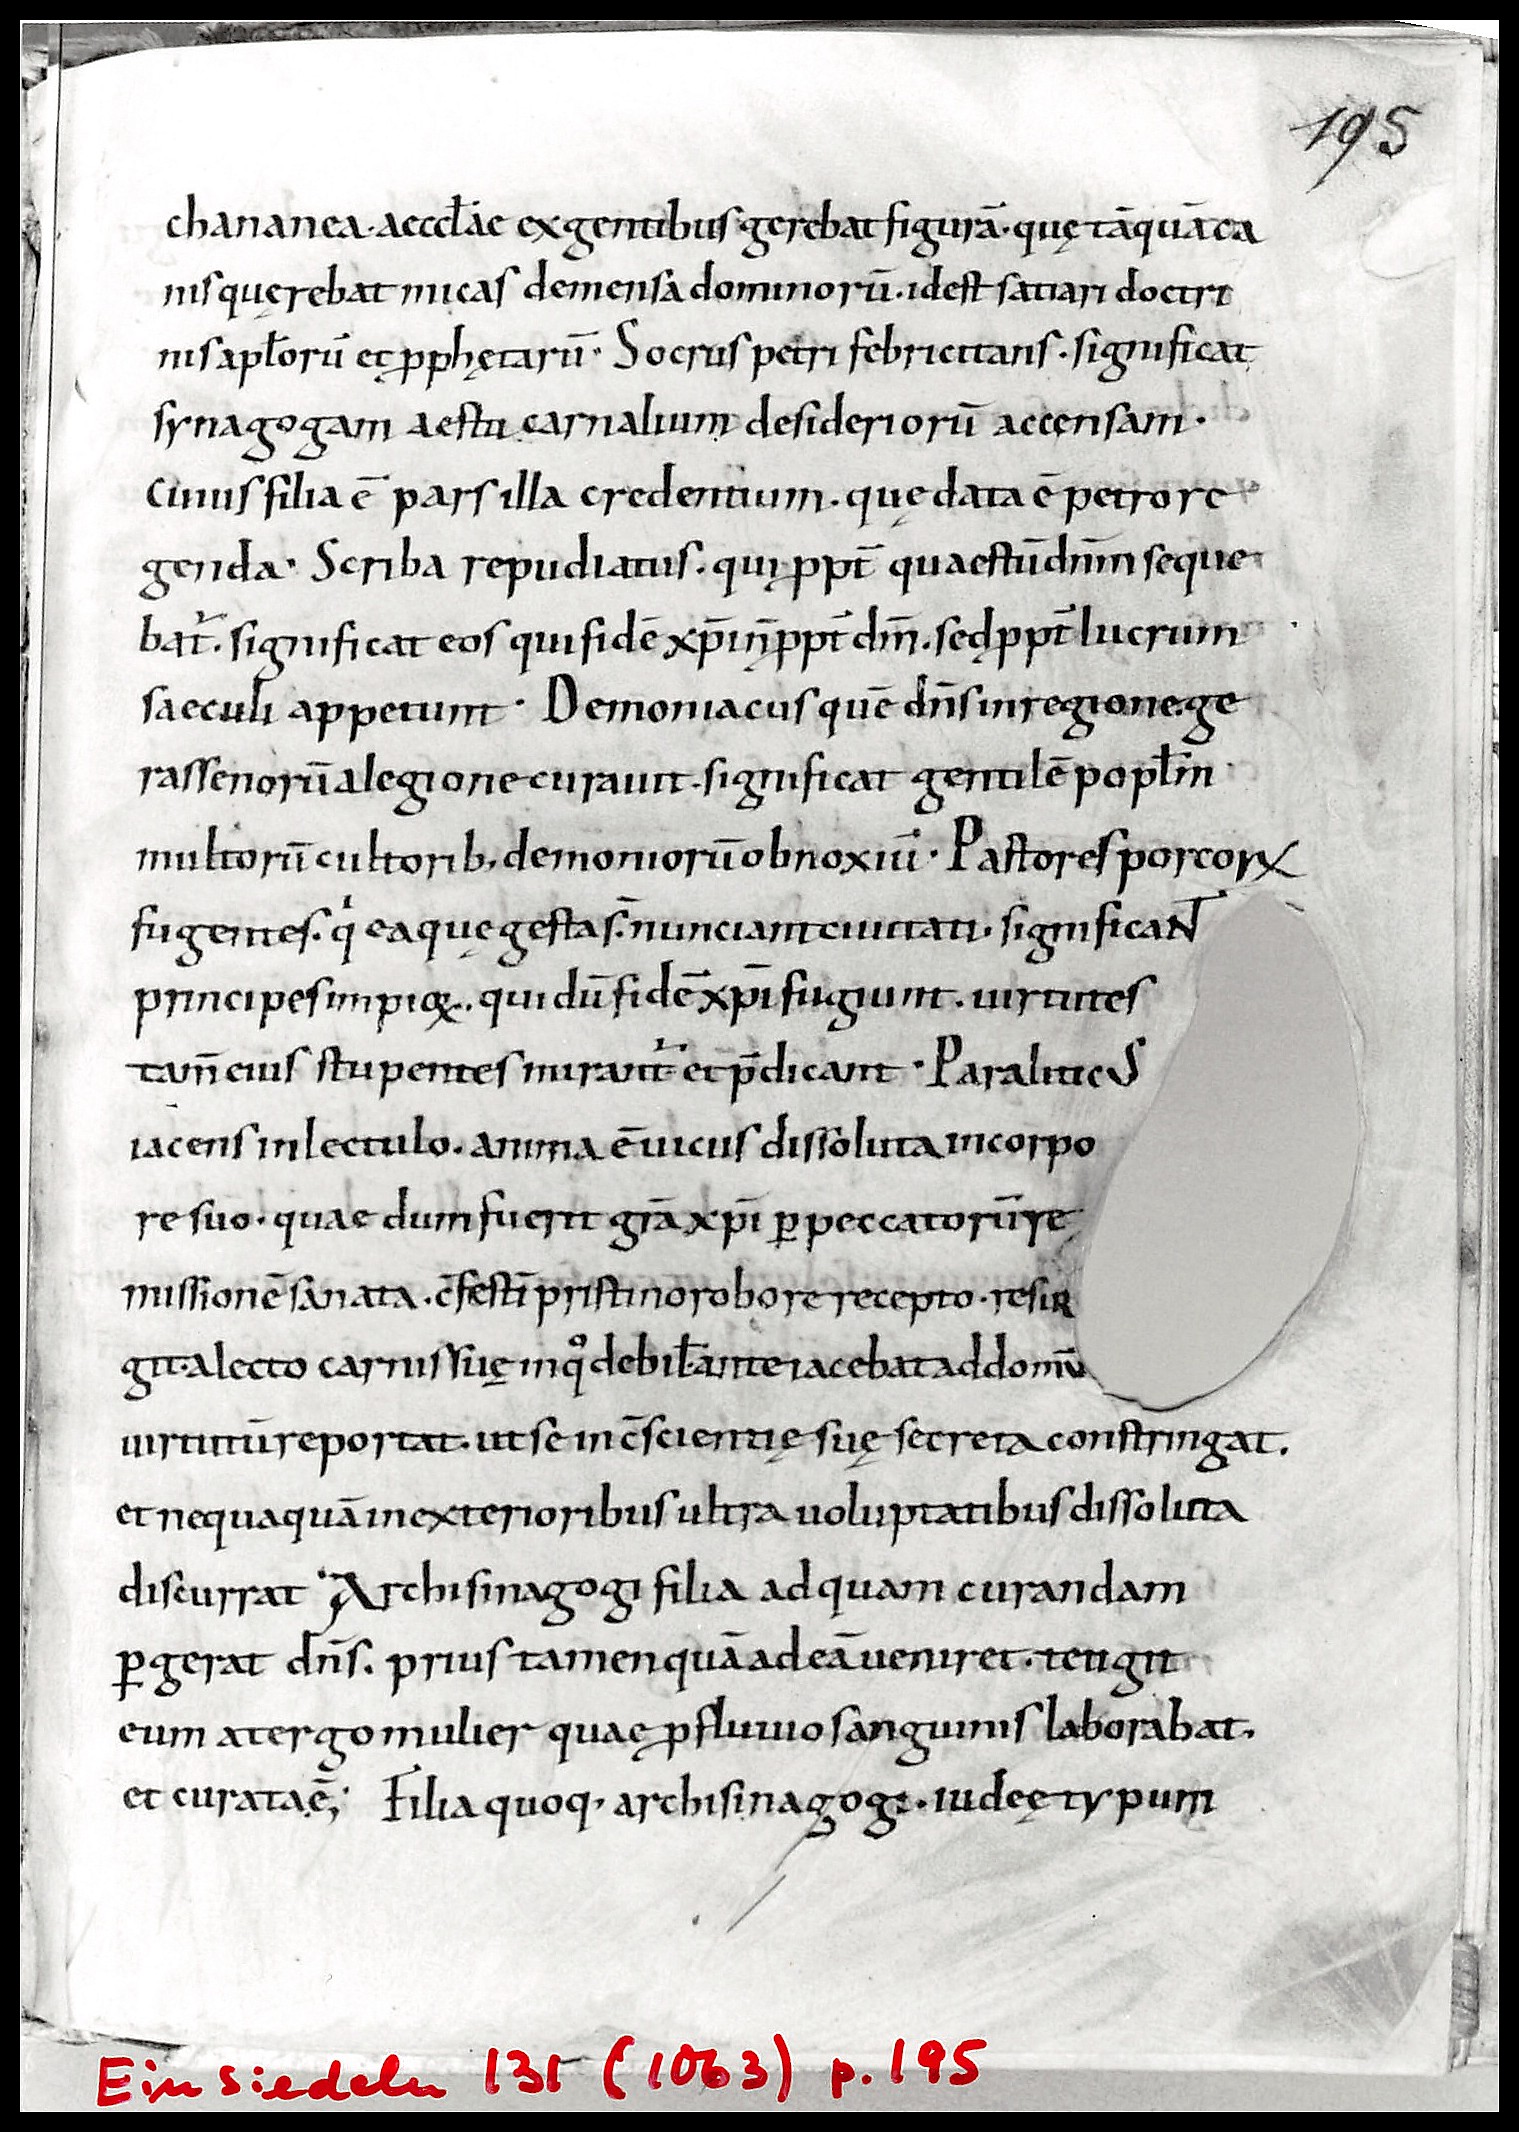 195
chananea. aeccl̄ae ex gentibus gerebat figurā. quę tāquā ca
nis quęrebat micas de mensa dominorū. id est satiari doctri
nis apl̄orū et p̱phętarū. Socrus petri febricitans. significat
synagogam aestu carnalium desideriorū accensam.
Cuius filia ē pars illa credentium. quę data ē petro re
genda. Scriba repudiatus. qui p̱pt̄ quaestū dn̄m seque
bat̄. significat eos qui fidē xp̄i n̄ p̱pt̄ dm̄. sed p̱pt̄ lucrum
saeculi appetunt. Demoniacus quē dn̄s in regione ge
rassenorū a legione curauit. significat gentilē popl̄m
multorū cultorib; demoniorū obnoxiū. Pastores porcoꝝ
fugentes. qͥ ea quę gesta s̄. nunciant ciuitati. significaNT
principes impioꝝ. qui dū fidē xp̄i fugiunt. uirtutes
tam̄ eius stupentes mirant̄ et p̄dicant. Paraliticus
iacens in lectulo. anima ē uicus dissoluta in corpo
re suo. quae dum fuerit gr̄a xp̄i ꝑ peccatorū re
missionē sanata. c̄festī pristino robore recepto. resur
git. a lecto carnis suę in qͦ debil̄ ante iacebat ad domū
uirtutū reportat. ut se in c̄scientię suę secreta constringat.
et nequaquā in exterioribus ultra uoluptatibus dissoluta
discurrat. Archisinagogi filia ad quam curandam
ꝑgerat dn̄s. prius tamen quā ad eā ueniret. tetigit
eum a tergo mulier quae p̱fluuio sanguinis laborabat.
et curata ē; Filia quoq. archisinagogi. iudeę typum
Einsiedeln 131 (1063) p. 195